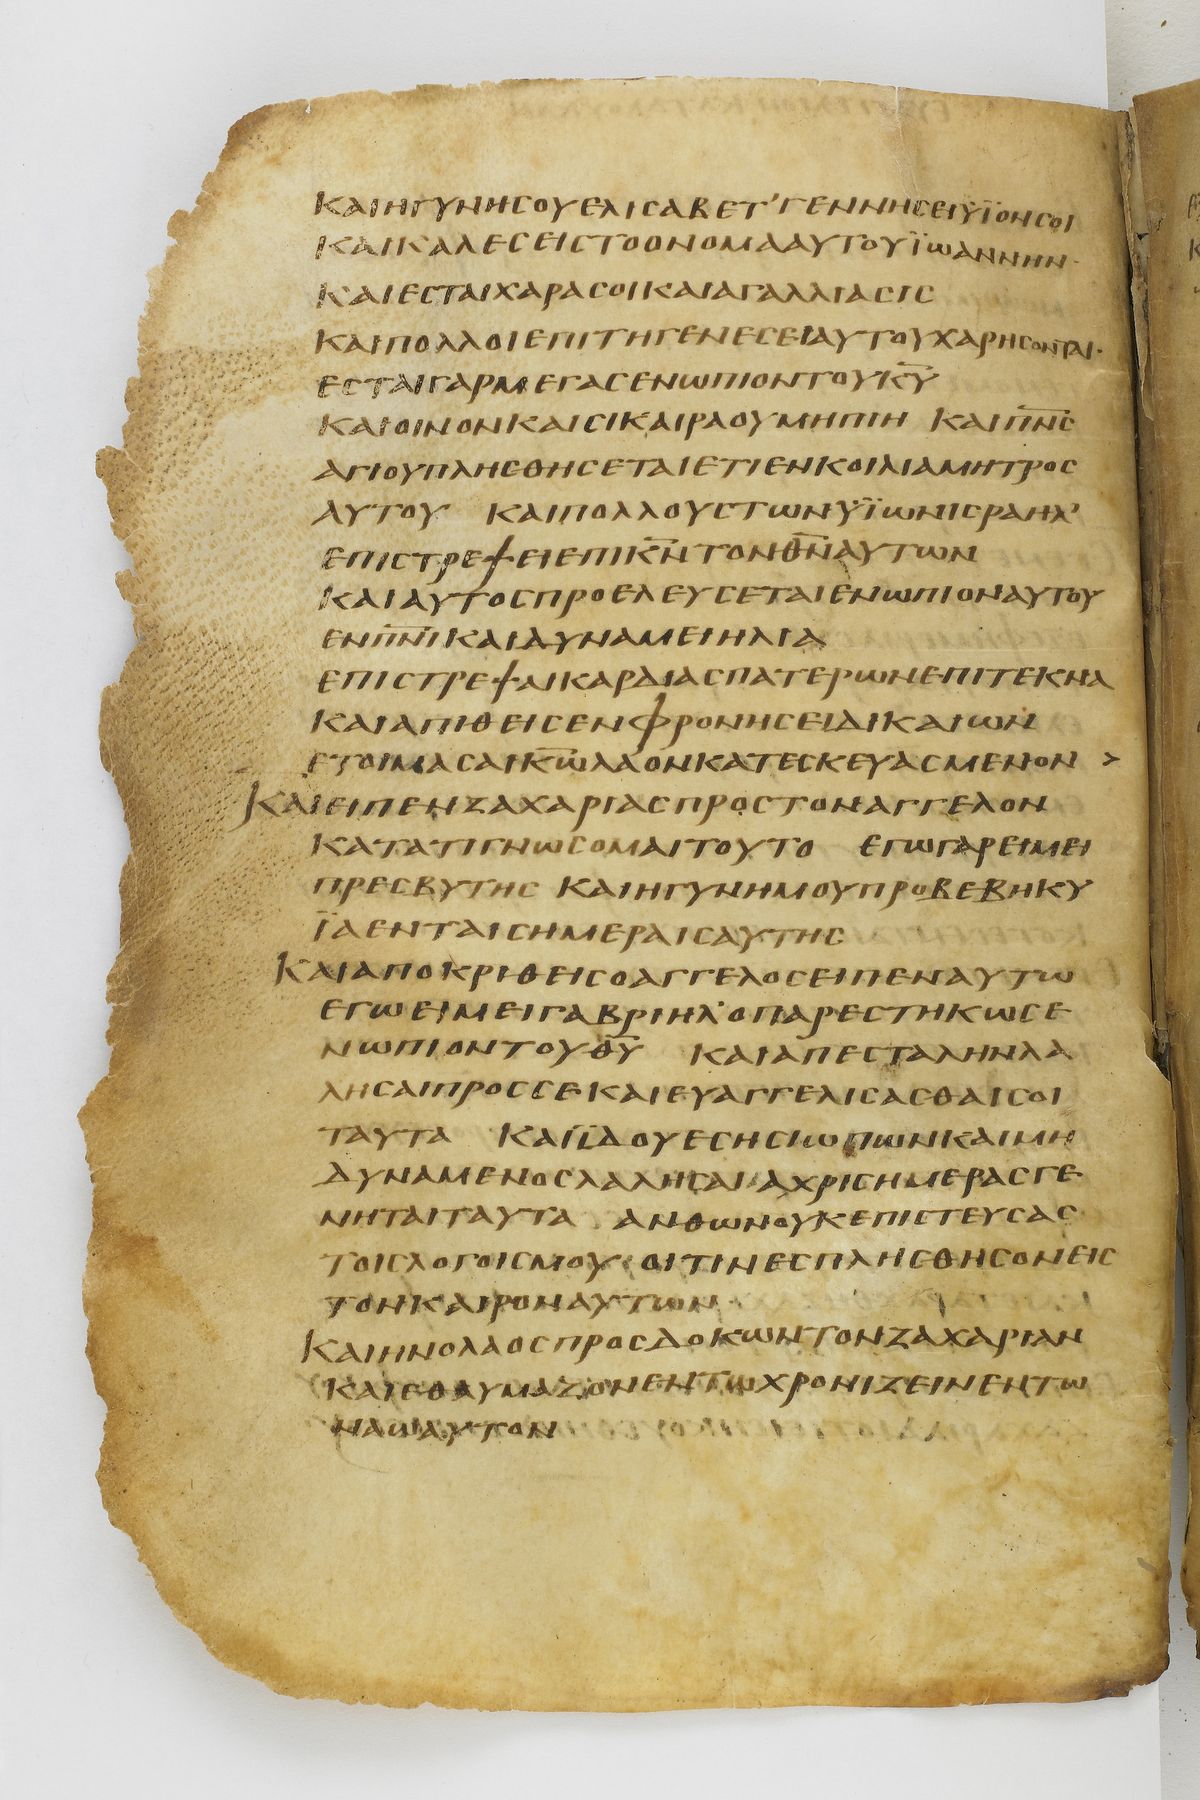 ΚΑΙΗΓΥΝΗϹΟΥΕΛΙϹΑΒΕΤ’ΓΕΝΝΗϹΕΙΥΪΟΝϹΟΙ
ΚΑΙΚΑΛΕϹΕΙϹΤΟΟΝΟΜΑΑΥΤΟΥΪΩΑΝΝΗΝ·
ΚΑΙΕϹΤΑΙΧΑΡΑϹΟΙΚΑΙΑΓΑΛΛΙΑϹΙϹ
ΚΑΙΠΟΛΛΟΙΕΠΙΤΗΓΕΝΕϹΕΙΑΥΤΟΥΧΑΡΗϹΟΝΤΑΙ·
ΕϹΤΑΙΓΑΡΜΕΓΑϹΕΝΩΠΙΟΝΤΟΥΚ̅Υ̅
ΚΑΙΟΙΝΟΝΚΑΙϹΙΚΑΙΡΑΟΥΜΗΠΙΗ ΚΑΙΠ̅Ν̅Ϲ̅
ΑΓΙΟΥΠΛΗϹΘΗϹΕΤΑΙΕΤΙΕΝΚΟΙΛΙΑΜΗΤΡΟϹ
ΑΥΤΟΥ ΚΑΙΠΟΛΛΟΥϹΤΩΝΥΪΩΝΙϹΡΑΗΛ’
ΕΠΙϹΤΡΕΨΕΙΕΠΙΚ̅Ν̅ΤΟΝΘ̅Ν̅ΑΥΤΩΝ
ΚΑΙΑΥΤΟϹΠΡΟΕΛΕΥϹΕΤΑΙΕΝΩΠΙΟΝΑΥΤΟΥ
ΕΝΠ̅Ν̅Ι̅ΚΑΙΔΥΝΑΜΕΙΗΛΙΑ
ΕΠΙϹΤΡΕΨΑΙΚΑΡΔΙΑϹΠΑΤΕΡΩΝΕΠΙΤΕΚΝΑ
ΚΑΙΑΠΙΘΕΙϹΕΝΦΡΟΝΗϹΕΙΔΙΚΑΙΩΝ
ΕΤΟΙΜΑϹΑΙΚ̅Ω̅ΛΑΟΝΚΑΤΕϹΚΕΥΑϹΜΕΝΟΝ >
ΚΑΙΕΙΠΕΝΖΑΧΑΡΙΑϹΠΡΟϹΤΟΝΑΓΓΕΛΟΝ
ΚΑΤΑΤΙΓΝΩϹΟΜΑΙΤΟΥΤΟ ΕΓΩΓΑΡΕΙΜΕΙ
ΠΡΕϹΒΥΤΗϹ ΚΑΙΗΓΥΝΗΜΟΥΠΡΟΒΕΒΗΚΥ
ΪΑΕΝΤΑΙϹΗΜΕΡΑΙϹΑΥΤΗϹ
ΚΑΙΑΠΟΚΡΙΘΕΙϹΟΑΓΓΕΛΟϹΕΙΠΕΝΑΥΤΩ
ΕΓΩΕΙΜΕΙΓΑΒΡΙΗΛ’ΟΠΑΡΕϹΤΗΚΩϹΕ
ΝΩΠΙΟΝΤΟΥΘ̅Υ̅ ΚΑΙΑΠΕϹΤΑΛΗΝΛΑ
ΛΗϹΑΙΠΡΟϹϹΕΚΑΙΕΥΑΓΓΕΛΙϹΑϹΘΑΙϹΟΙ
ΤΑΥΤΑ ΚΑΙΪΔΟΥΕϹΗϹΙΩΠΩΝΚΑΙΜΗ
ΔΥΝΑΜΕΝΟϹΛΑΛΗϹΑΙΑΧΡΙϹΗΜΕΡΑϹΓΕ
ΝΗΤΑΙΤΑΥΤΑ ΑΝΘΩΝΟΥΚΕΠΙϹΤΕΥϹΑϹ
ΤΟΙϹΛΟΓΟΙϹΜΟΥ ΟΙΤΙΝΕϹΠΛΗϹΘΗϹΟΝΕΙϹ
ΤΟΝΚΑΙΡΟΝΑΥΤΩΝ
ΚΑΙΗΝΟΛΑΟϹΠΡΟϹΔΟΚΩΝΤΟΝΖΑΧΑΡΙΑΝ
ΚΑΙΕΘΑΥΜΑΖΟΝΕΝΤΩΧΡΟΝΙΖΕΙΝΕΝΤΩ
ΝΑΩΑΥΤΟΝ